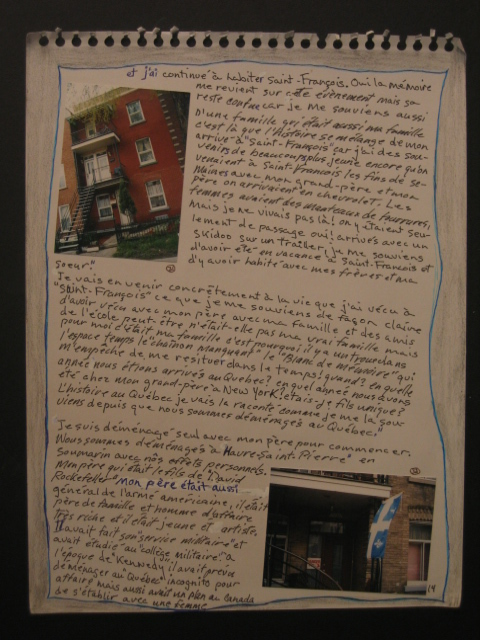 et j'ai continué à habiter Saint-François. Oui la mémoire
me revient sur cette évènement mais ça
reste confue car je me souviens aussi
D'une famille qui était aussi ma famille
c'est là que l'histoire se mélange de mon
arrivé à "Saint-François" car j'ai des sou-
venirs de beaucoup plus jeune encore qu'on
venaient à Saint-Francois les fins de se-
maines avec mon grand-père et mon
père on arrivaient en chevrolet. Les
femmes avaient des manteaux de fourrures,
Mais je ne vivais pas là! on y étaient seu-
lement de passage oui! arrivés avec un
Skidoo sur un trailer, je me souviens
d'avoir été en vacance à Saint-François et
d'y avoir habité avec mes frères et ma
soeur."
Je vais en venir concrètement à la vie que j'ai vécu à
"Saint-François" ce que je me souviens de façon claire
d'avoir vécu avec mon père avec ma famille et des amis
de l'école peut-être n'était-elle pas ma vrai famille mais
pour moi c'était ma famille c'est pourquoi il y a un trou dans
l'espace temps le "chaînon Manquent" le "Blanc de mémoire" qui
m'empêche de me resituer dans le temps! quand? en quelle
année nous étions arrivés au Québec? en quel année nous avons
été chez mon grand-père à New York? étais-je fils unique?
L'histoire au Québec je vais la raconté comme je me la sou-
viens depuis que nous sommes déménagés au Québec."
Je suis déménagé seul avec mon père pour commencer.
Nous sommes déménagés à Havre-Saint-Pierre en
soumarin avec nos effets personnels.
Mon père qui était le fils de "David
Rockefeller" mon père était aussi
général de l'armé américaine, il était
père de famille et homme d'affaire
très riche et il était jeune et artiste.
Il avait fait son service militaire et
avait étudié au "collège militaire". à
l'époque de Kennedy, il avait prévue
déménager au Québec incognito pour
affaire mais aussi avait un plan au Canada
de s'établir avec une femme